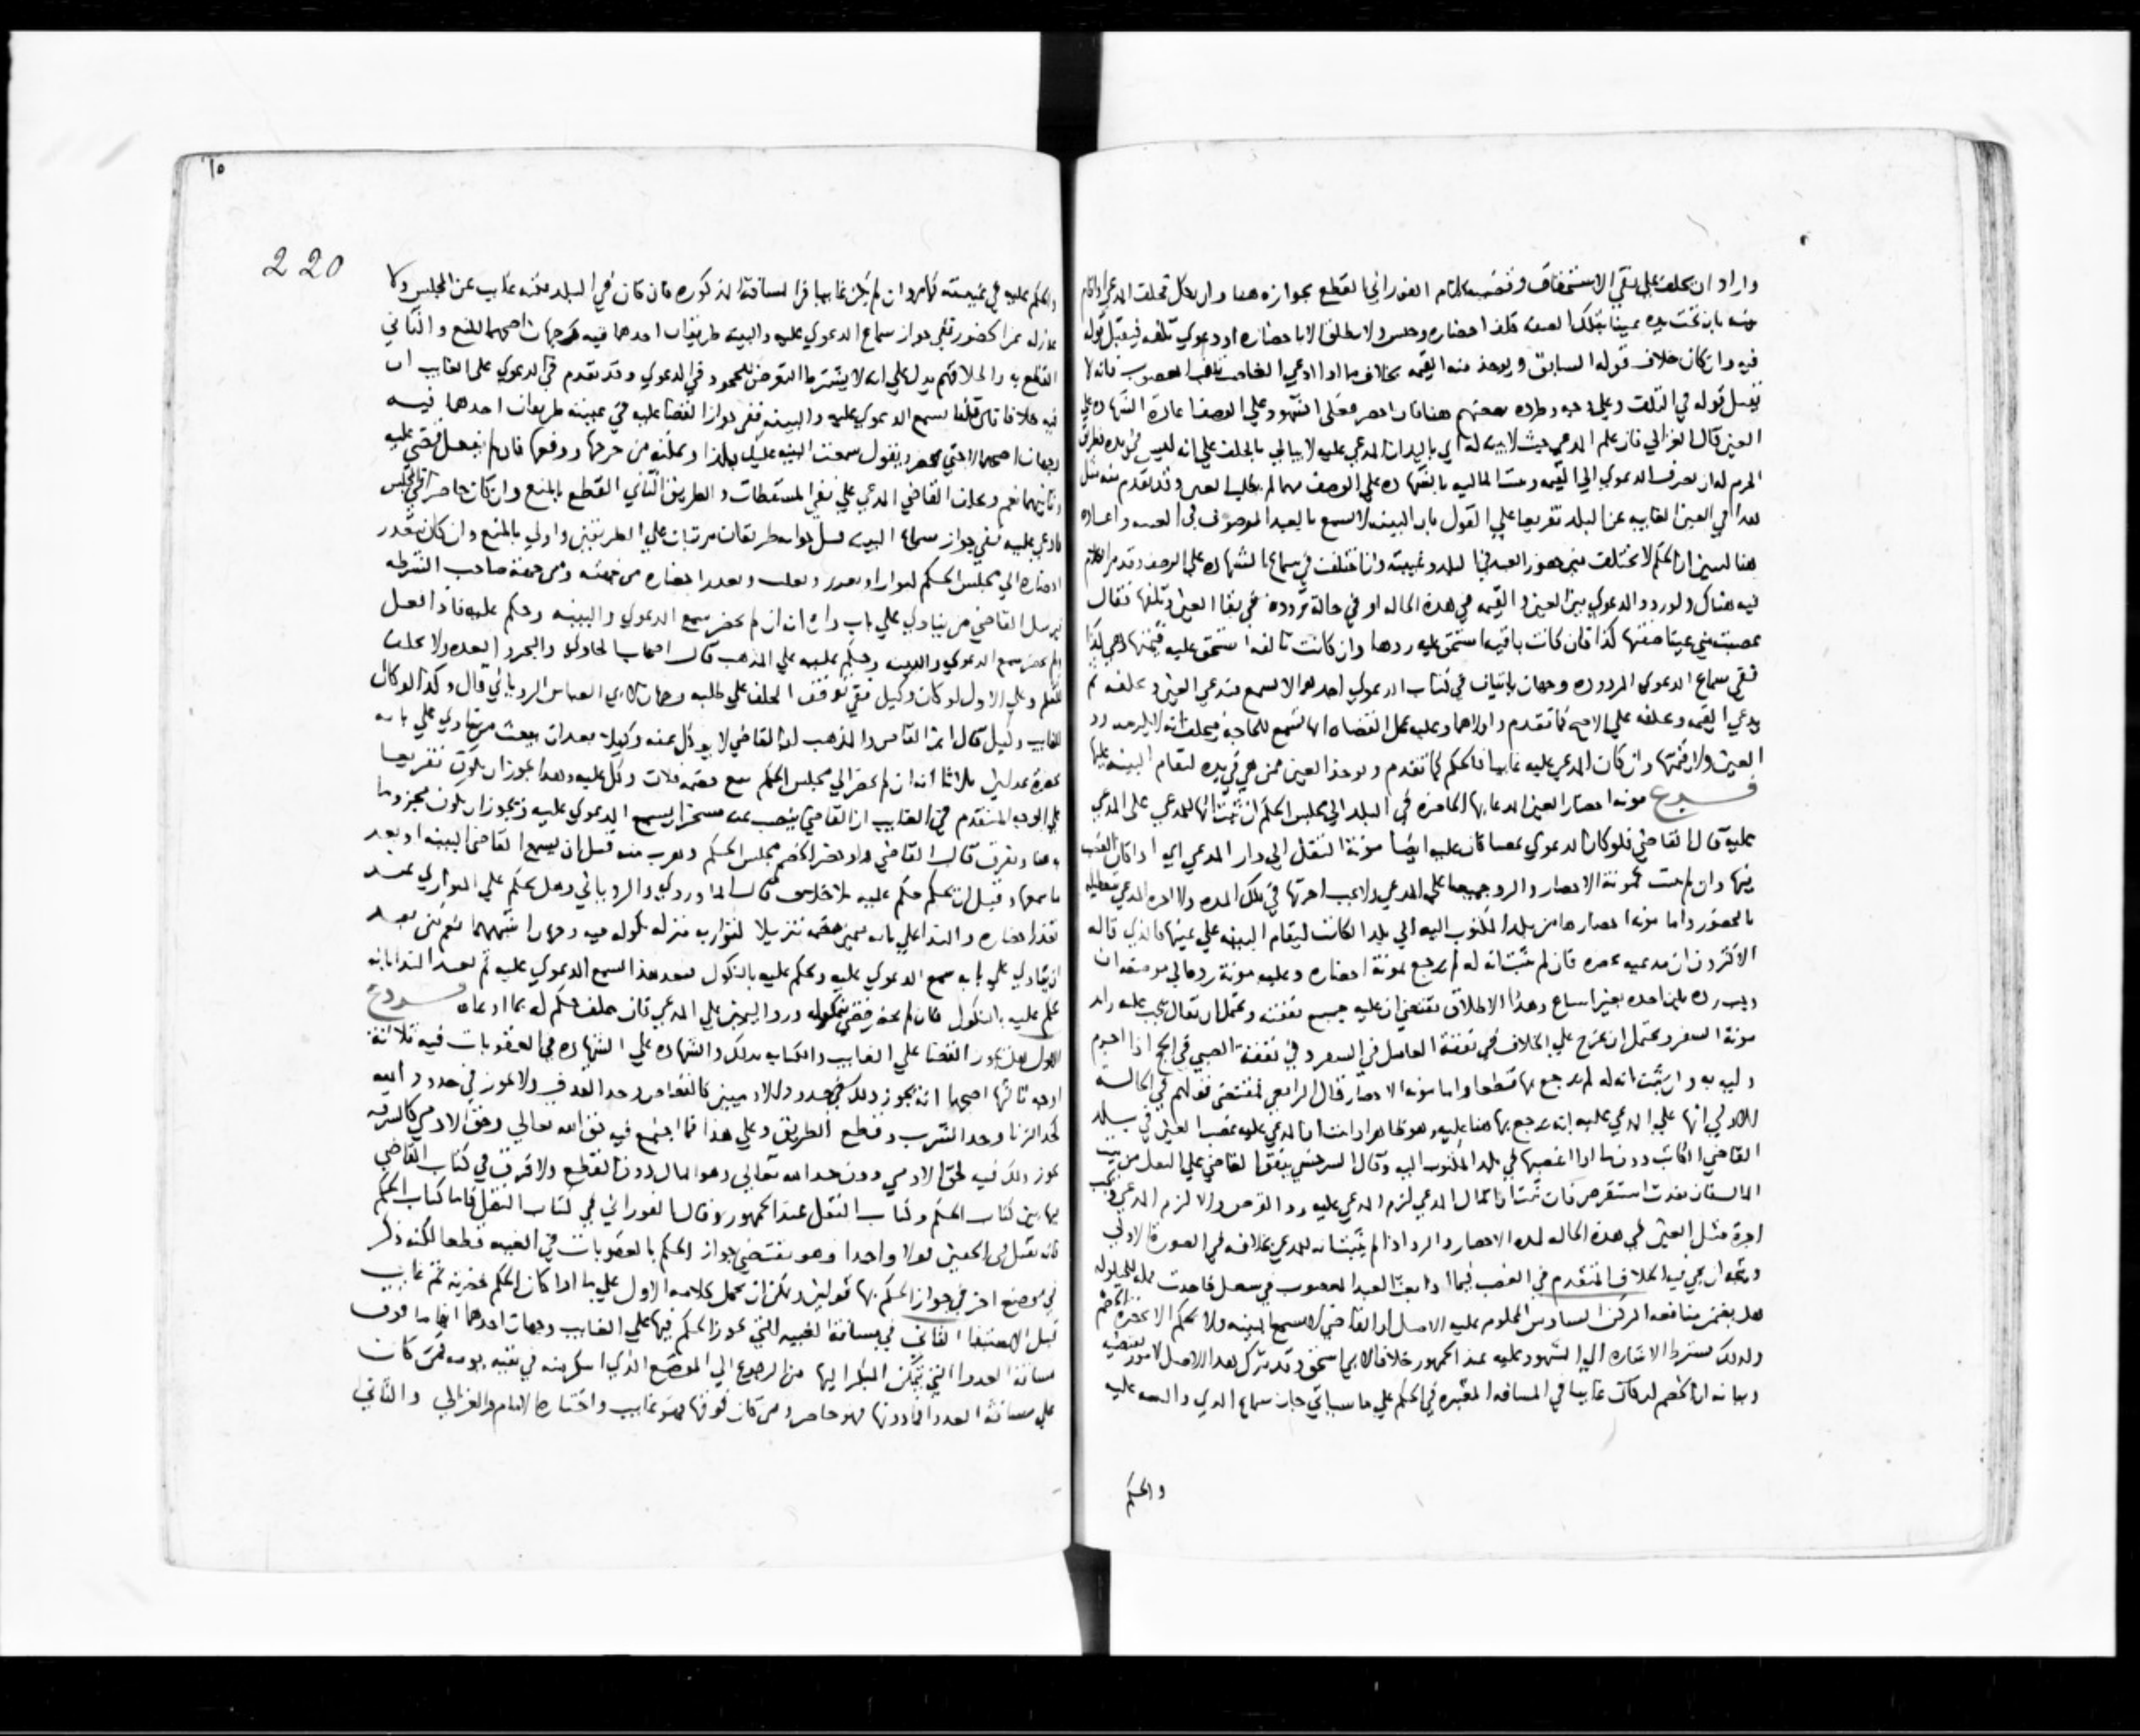 واراد ان يحلف علي نفي الاستحقاق وقضيه كلام الفوراني القطع بجوازه هنا وان نكل فحلف المدعي او اقام
بينه بان تحت يده عينا بتلك الصفه كلف احضاره وحبس ولا يطلق الا باحضاره او دعوي تلفه فيقبل قوله
فيه وان كان خلاف قوله السابق ويوخذ منه القيمه بخلاف ما اذا ادعي الغاصب تلف المغصوب فانه لا
يقبل قوله في التلف وعلي وجه
العين قال الغزالي فان علم المدعي حيث لا بينه له ان المدعي عليه لا يبالي بالحلف علي انه ليس في يده
الجزم له ان يصرف الدعوي الي القيمه وتثبت الماليه بالشهاده علي الوصف وقد تقدم منه مثل
هذا في العين الغايبه عن البلد تفريعا علي القول بان البينه لا تسمع بالعبد الموصوف في الغيبه واعاده
هنا ليبين ان الحكم لا يختلف بين حضور العبد في البلد وغيبته وان اختلفت في سماع الشهاده علي الوصف وقد مر الكلام
فيه هناك ولو ردد الدعوي بين العين والقيمه في هذه الحاله او في حالة تردده في بقا العين وتلفها فقال
غصبت مني عينا صفتها كذا فان كانت باقيه استحق عليه ردها وان كانت تالفه استحق عليه قيمتها وهي كذا
ففي سماع الدعوي المردده وجهان ياتيان في كتاب الدعوي احدهما لا تسمع فتدعي العين ويحلفه ثم
يدعي القيمه ويحلفه علي الاصح كما تقدم واولاهما وعليه عمل القضاه انها تسمع للحاجه فيحلف انه لا يلزمه رد
العين ولا قيمتها وان كان المدعي عليه غايبا فالحكم كما تقدم ويوخذ العين ممن هي في يده لتقام البينه عليها
فـــروع مونه احضار العين المدعا بها الحاضره في البلد الي مجلس الحكم ان ثبت انها للمدعي علي المدعي
عليه قال القاضي فلو كان الدعوي غصبا كان عليه ايضا مونة النقل الي دار المدعي اي اذا كان الغصب
منها وان لم يثبت فمونة الاحضار والرد جميعا علي المدعي ولا يجب اجرتها في تلك المده ولا اجره المدعي عليه
بالحضور واما مونه احضارها من بلد المكتوب اليه الي بلد الكاتب ليقام البينه علي عينها فالذي قاله
الاكثرون ان مدعيه يحضره فان لم يثبت انه له لم يرجع بمونة احضاره وعليه مونة رده الي موضعه ان
ويرده باين احده بغير اساع وهذا الاطلاق يقتضي ان عليه جميع نفقته ويحتمل ان يقال يجب عليه زايد
مونة السفر ويحتمل ان يخرج علي الخلاف في نفقة العامل في السفر وفي نفقة الصبي في الحج اذا احرم
وليه به وان ثبت انه له لم يرجع بها قطعا واما مونه الاحضار فقال الرافعي مقتضي قولهم في الحالة
الاولي انها علي المدعي عليه انه يرجع بها هنا عليه وهو ظاهر اذا ثبت ان المدعي عليه غصب العين في بلد
القاضي الكاتب دون ما اذا غصبها في بلد المكتوب اليه وقال السرخسي ينفق القاضي علي النقل من بيت
المال فان تعذر استقرض فان ثبت انها مال المدعي لزم المدعي عليه رد القرض والا لزم المدعي ويجب
اجرة مثل العين في هذه الحاله لمده الاحضار والرد اذا لم يثبت انه للمدعي بخلافه في الصورة الاولي
ويتجه ان يجي فيه الخلاف المتقدم في الغصب فيما اذا بعث العبد المغصوب في شغل فاخذت للحيلوله
هل يضمن منافعه الركن السادس المحكوم عليه الاصل ان القاضي لا يسمع البينه ولا يحكم الا بحضرة الخصم
ولذلك يشترط الاشاره اليه الشهود عليه عند الجمهور خلافا لابي اسحق وقد يترك هذا الاصل لامور تقتضيه
وبيانه ان الخصم لو كان غايبا في المسافه المعتبره في الحكم علي ما سياتي جاز سماع الدعوي والبينه عليه
والحكم
٦٥
220
والحكم عليه في غيبته كما مر وان لم يكن غايبا في المسافة المذكوره فان كان في البلد لكنه غايب عن المجلس ولا
عذر له عن الحضور ففي جواز سماع الدعوي عليه والبينه طريقان احدهما فيه وجهان اصحهما المنع والثاني
القطع به واطلاقهم يدل علي انه لا يشترط التعرض للجحود في الدعوي وقد تقدم في الدعوي علي الغايب ان
فيه خلافا فان قلنا تسمع الدعوي عليه والبينه ففي جواز القضا عليه في غيبته طريقان احدهما فيه
وجهان اصحهما لا حتي يحضر ويقول سمعت البينه عليك بكذا ويمكنه من جرحها ودفعها فان لم يفعل قضي عليه
وثانيهما نعم ويحلف القاضي المدعي علي نفي المسقطات والطريق الثاني القطع بالمنع وان كان حاضرا في المجلس
فادعي عليه ففي جواز سماع البينه قبل جوابه طريقان مرتبان علي الطريقين واولي بالمنع وان كان تعذر
احضاره الي مجلس الحكم لتوار او تعزز وتغلب وتعذر احضاره من جهته ومن جهة صاحب الشرطه
فيرسل القاضي من ينادي علي باب داره انه ان لم يحضر سمع الدعوي والبينه وحكم عليه فاذا فعل
ولم يحضر سمع الدعوي والبينه وحكم عليه علي المذهب قال اصحاب الحاوي والبحر والعده ولا يحلف
للتعلم وعلي الاول لو كان وكيل ففي توقف الحلف علي طلبه وجهان لابي العباس الروياني قال وكذا لو كان
للغايب وكيل قال ابن القاص والمذهب ان القاضي لا يوكل عنه وكيلا بعد ان يبعث من ينادي علي بابه
بحضرة عدلين ثلاثا انه ان لم يحضر الي مجلس الحكم مع خصمه فلان وكل عليه وهذا يجوز ان يكون تفريعا
علي الوجه المتقدم في الغايب ان القاضي ينصب عنه مسخرا ليسمع الدعوي عليه ويجوز ان يكون مجزوما
به هنا ويفرق قال القاضي ولو حضر الخصم مجلس الحكم وهرب منه قبل ان يسمع القاضي البينه او بعد
ما سمعها وقبل ان يحكم حكم عليه بلا خلاف قال الماوردي والروياني وهل يحكم علي المتواري عند
تعذر احضاره والندا علي بابه بيمين خصمه تنزيلا لتواريه منزله نكوله فيه وجهان اشبههما نعم لكن بعد
ان ينادي علي بابه سمع الدعوي عليه ويحكم عليه بالنكول فبعد هذا يسمع الدعوي عليه ثم يعيد الندا بانه
يحكم عليه بالنكول فان لم يحضر قضي بنكوله ورد اليمين علي المدعي فان حلف حكم له بما ادعاه فـــروع
الاول هل يجوز القضا علي الغايب والكتاب بذلك والشهاده علي الشهاده في العقوبات فيه ثلاثة
اوجه ثالثها اصحها انه يجوز ذلك في حدود الادميين كالقصاص وحد القذف ولا يجوز في حدود الله
كحد الزنا وحد الشرب وقطع الطريق وعلي هذا فما اجتمع فيه حق الله تعالي وحق الادمي كالسرقه
يجوز ذلك فيه لحق الادمي دون حد الله تعالي وهو المال دون القطع ولا فرق في كتاب القاضي
بها بين كتاب الحكم وكتاب النقل عند الجمهور وقال الفوراني هي في كتاب النقل فاما كتاب الحكم
فانه يقبل في الحقين قولا واحدا وهو يقتضي جواز الحكم بالعقوبات في الغيبه قطعا لكنه ذكر
في موضع اخر في جواز الحكم بها قولين ويمكن ان يحمل كلامه الاول علي ما اذا كان الحكم بحضرته ثم غاب
قبل الاستيفا الثاني في مسافة الغيبه التي يجوز الحكم فيها علي الغايب وجهان احدهما انها ما فوق
مسافة العدوا التي يتمكن المبكر اليها من الرجوع الي الموضع الذي ابتكر منه في بقيه يومه فمن كان
علي مسافة العدوا فما دونها فهو حاضر ومن كان فوقها فهو غايب واختاره الامام والغزالي والثاني